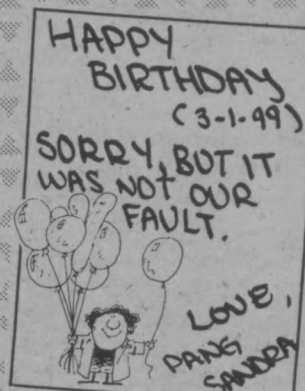 HAPPY
BIRTHDAY
(3-1-99)
SORRY, BUT IT
WAS NOT OUR
FAULT.
LOVE,
PANG
SANDRA